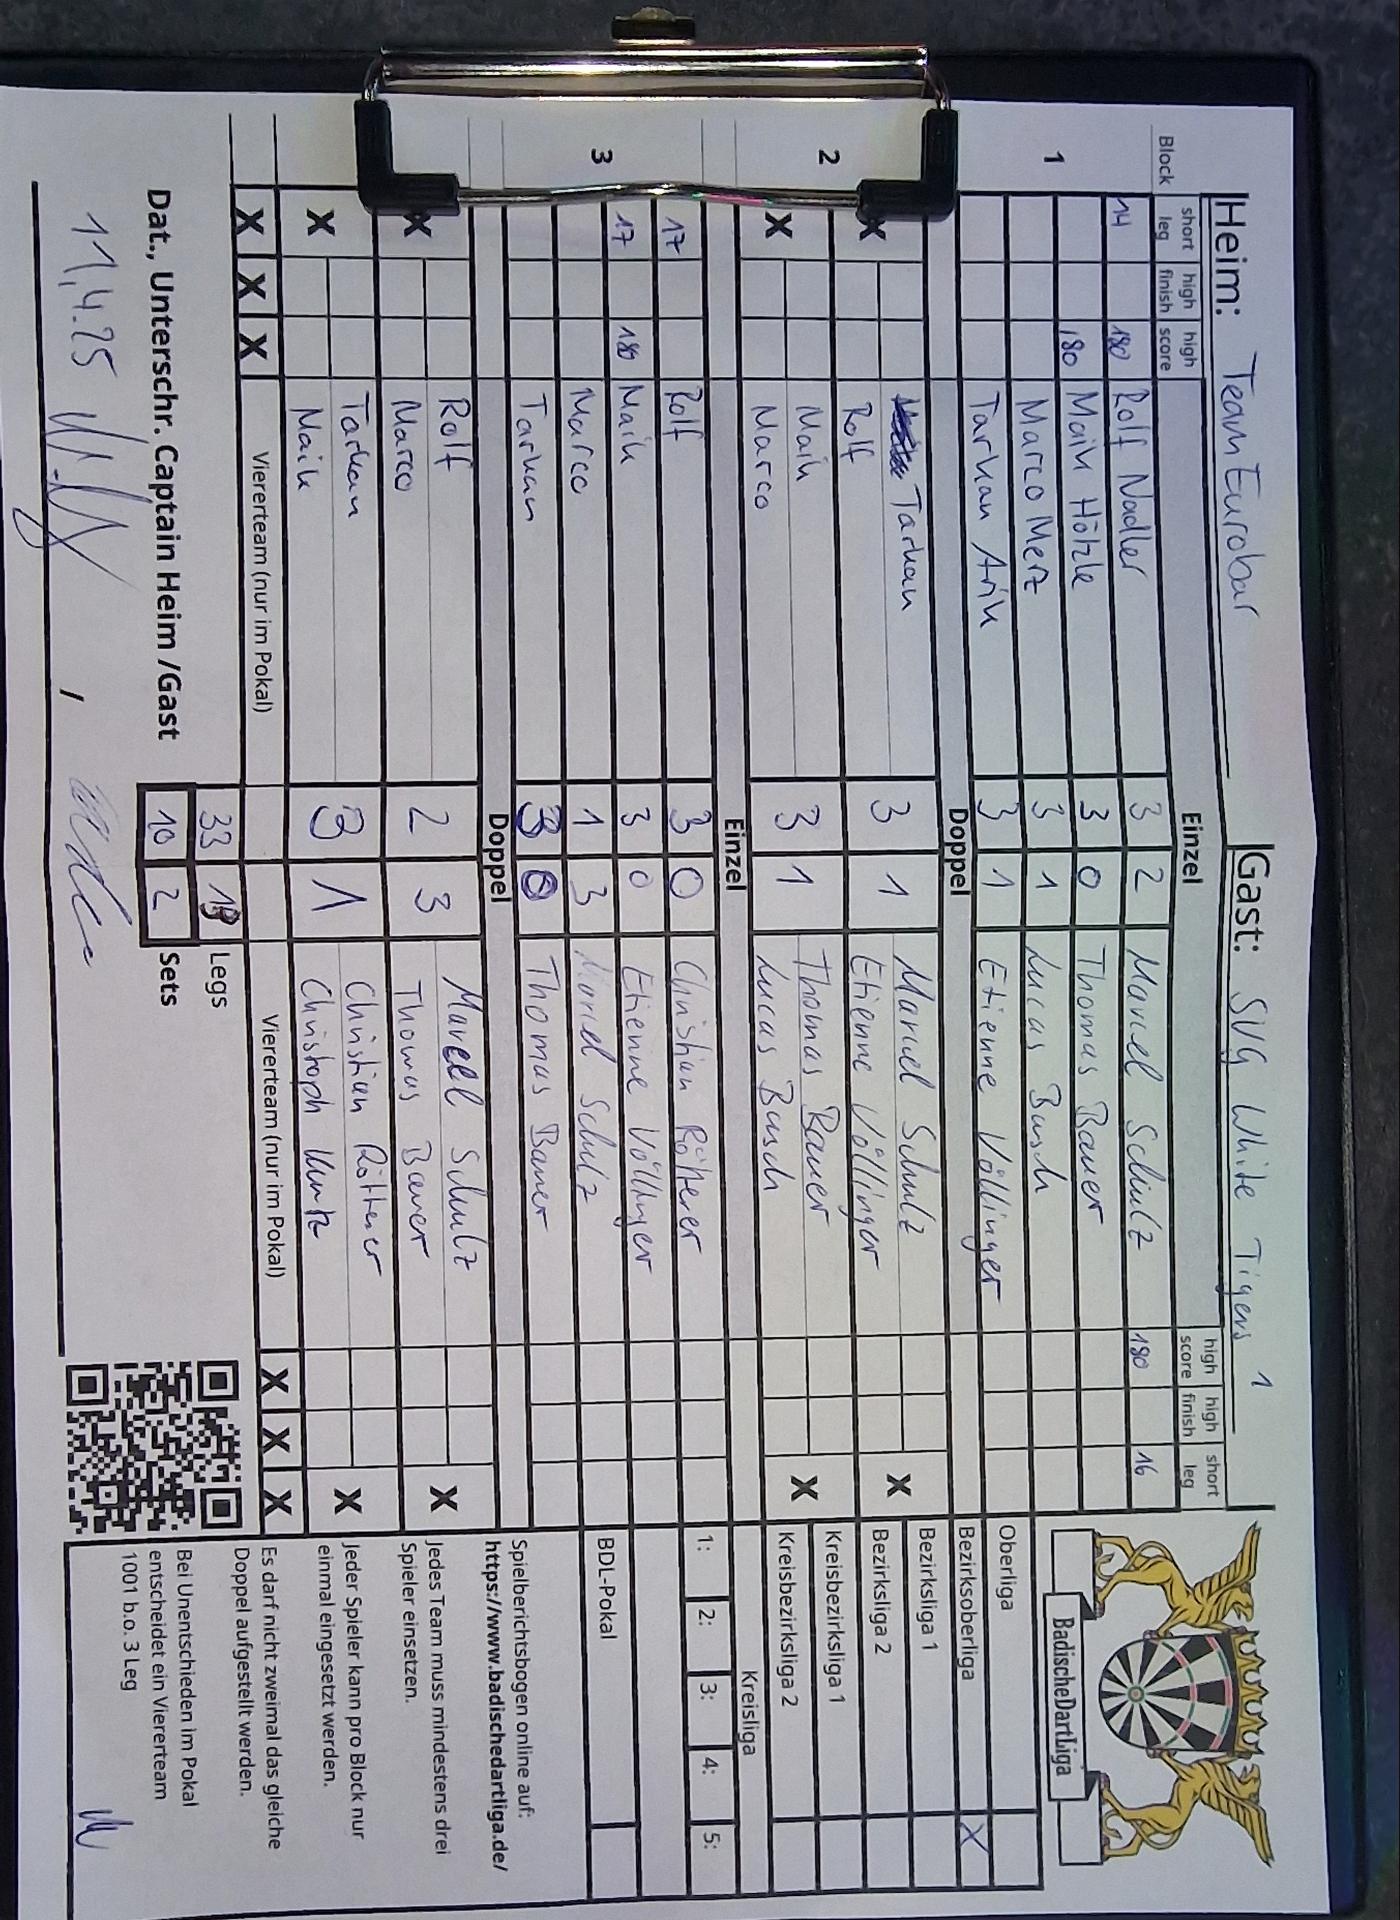 Heim: Team Eurobar Gast: SVG White Tigers 1
Block short leg high finish high score Einzel high score high finish short leg
1
14 180 Rolf Nadler 3 2 Marcel Schulz 180 16
180 Maik Hötzle 3 0 Thomas Bauer
Marco Merz 3 1 Lucas Busch
Tarkan Arik 3 1 Etienne Völlinger
Doppel
2
X Tarkan 3 1 Marcel Schulz X
Rolf Etienne Völlinger
X Maik 3 1 Thomas Bauer X
Marco Lucas Busch
Einzel
3
17 Rolf 3 0 Christian Rötterer
17 180 Maik 3 0 Etienne Völlinger
Marco 1 3 Marcel Schulz
Tarkan 3 0 Thomas Bauer
Doppel
X Rolf 2 3 Marcel Schulz X
Marco Thomas Bauer
X Tarkan 3 1 Christian Rötterer X
Maik Christoph Kunz
X X X Viererteam (nur im Pokal) Viererteam (nur im Pokal) X X X
33 Legs
Dat., Unterschr. Captain Heim /Gast 10 2 Sets
11.4.25 ,
BadischeDartLiga
Oberliga
Bezirksoberliga X
Bezirksliga 1
Bezirksliga 2
Kreisbezirksliga 1
Kreisbezirksliga 2
Kreisliga
1: 2: 3: 4: 5:
BDL-Pokal
Spielberichtsbogen online auf:
https://www.badischedartliga.de/
Jedes Team muss mindestens drei
Spieler einsetzen.
Jeder Spieler kann pro Block nur
einmal eingesetzt werden.
Es darf nicht zweimal das gleiche
Doppel aufgestellt werden.
Bei Unentschieden im Pokal
entscheidet ein Viererteam
1001 b.o. 3 Leg